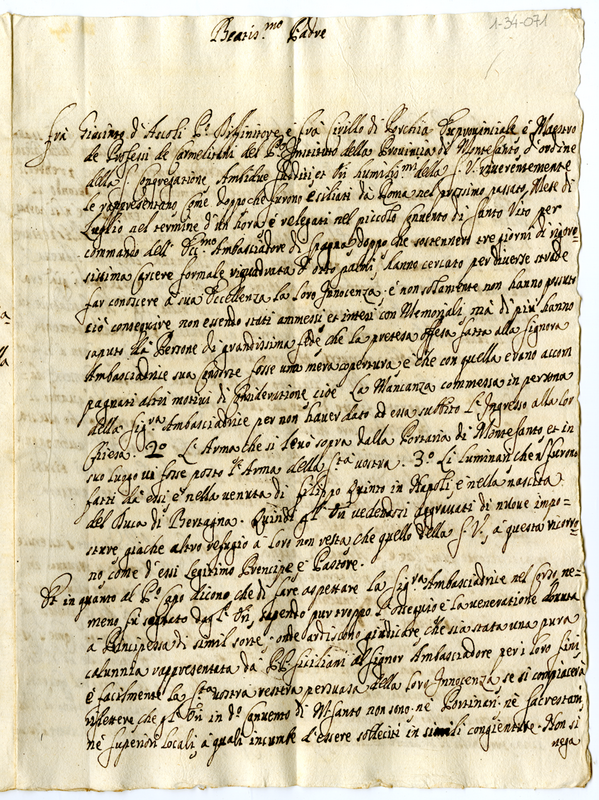 1-34-071
Beatis.mo Padre
Frà Giacinto d'Ascoli P.e Diffinitore, e frà Cirillo di Porchia Exprovinciale, e Maestro
de Professi de Carmelitani del P.o Instituto della Provincia di Monte Santo, d'ordine
della S. Congregatione Ambidue sudditi et Ori humiliss.mi della S. V. riverentemente
le rapresentano come doppo che furono esiliati da Roma nel prossimo passato Mese di
Luglio nel termine d'un hora, e relegati nel piccolo Convento di Santo Vito per
commando dell' Ecc.mo Ambasciadore di Spagna, doppo che sostennero tre giorni di rigoro=
sissima carcere formale riguardata d'otto palmi, hanno cercato per diverse strade
far conoscere a sua Eccellenza la loro Innocenza, e non solamente non hanno possuto
ciò conseguire non essendo stati ammessi et intesi con Memoriali, ma di più hanno
saputo da Persone di grandissima fede, che la pretesa offesa fatta alla Signora
Ambasciadrice sua Consorte fosse una mera copertura, e che con quella erano accom
pagnati altri motivi di consideratione cioè. La Mancanza commessa in persona
della Sig.ra Ambasciadrice per non haver dato ad essa subbito l'Ingresso alla lor
Chiesa. 2.o L'Arma che si levò sopra dalla Portaria di Monte Santo, et in
suo luogo vi fosse posto l'Arma della S.tà vostra. 3.o Li luminari che furono
fatti da essi e nella venuta di Filippo Quinto in Napoli, e nella nascita
del Duca di Bertagna. Quindi gl'Ori vedendosi aggravati di nuove impo=
sture, giache altro refugio a loro non resta che quello della S. V., a questa ricorro=
no come d'essi legitimo Prencipe, e Pastore.
Et in quanto al P.o capo dicono, che di fare aspettare la Sig.ra Ambasciadrice nel
meno fu sognato dagl'Ori, sapendo pur troppo l'ossequio, e la veneratione dovuta
a Principessa di simil sorte, onde ardiscono giudicare che sia stata una pura
calunnia rappresentata da PP. Siciliani al Signor Ambasciadore per i loro fini
e facilmente la S.tà vostra resterà persuasa della loro Innocenza, se si compiacerà
riflettere, che gl'Ori in d.o Convento di M. Santo non sono nè Portinari, nè Sacrestani,
nè Superiori locali, a quali incumbe d'essere solleciti in simili congienture. Non si
nega